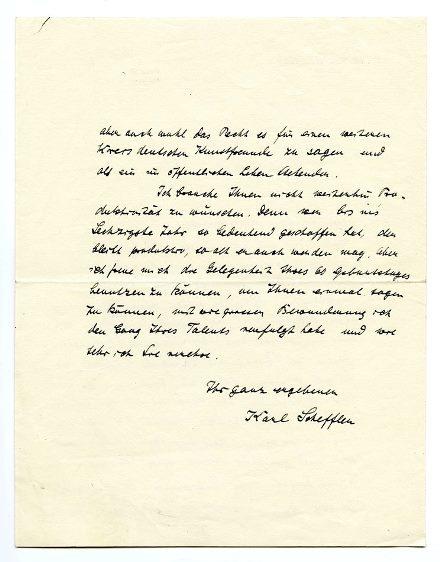 aber auch wohl das Recht es für einen weiteren
Kreis deutscher Kunstfreunde zu sagen und
als ein im öffentlichen Leben stehender.
Ich brauche Ihnen nicht weiterhin Pro-
duktivität zu wünschen. Denn wer bis ins
Sechzigste Jahr so bedeutend geschaffen hat, der
bleibt produktiv, so alt er auch werden mag. Aber
ich freue mich die Gelegenheit Ihres 60 Geburtstages
benutzen zu können, um Ihnen einmal sagen
zu können, mit wie grosser Bewunderung ich
den Gang Ihres Talents verfolgt habe und wie
sehr ich Sie verehre.
Ihr ganz ergebener
Karl Scheffler